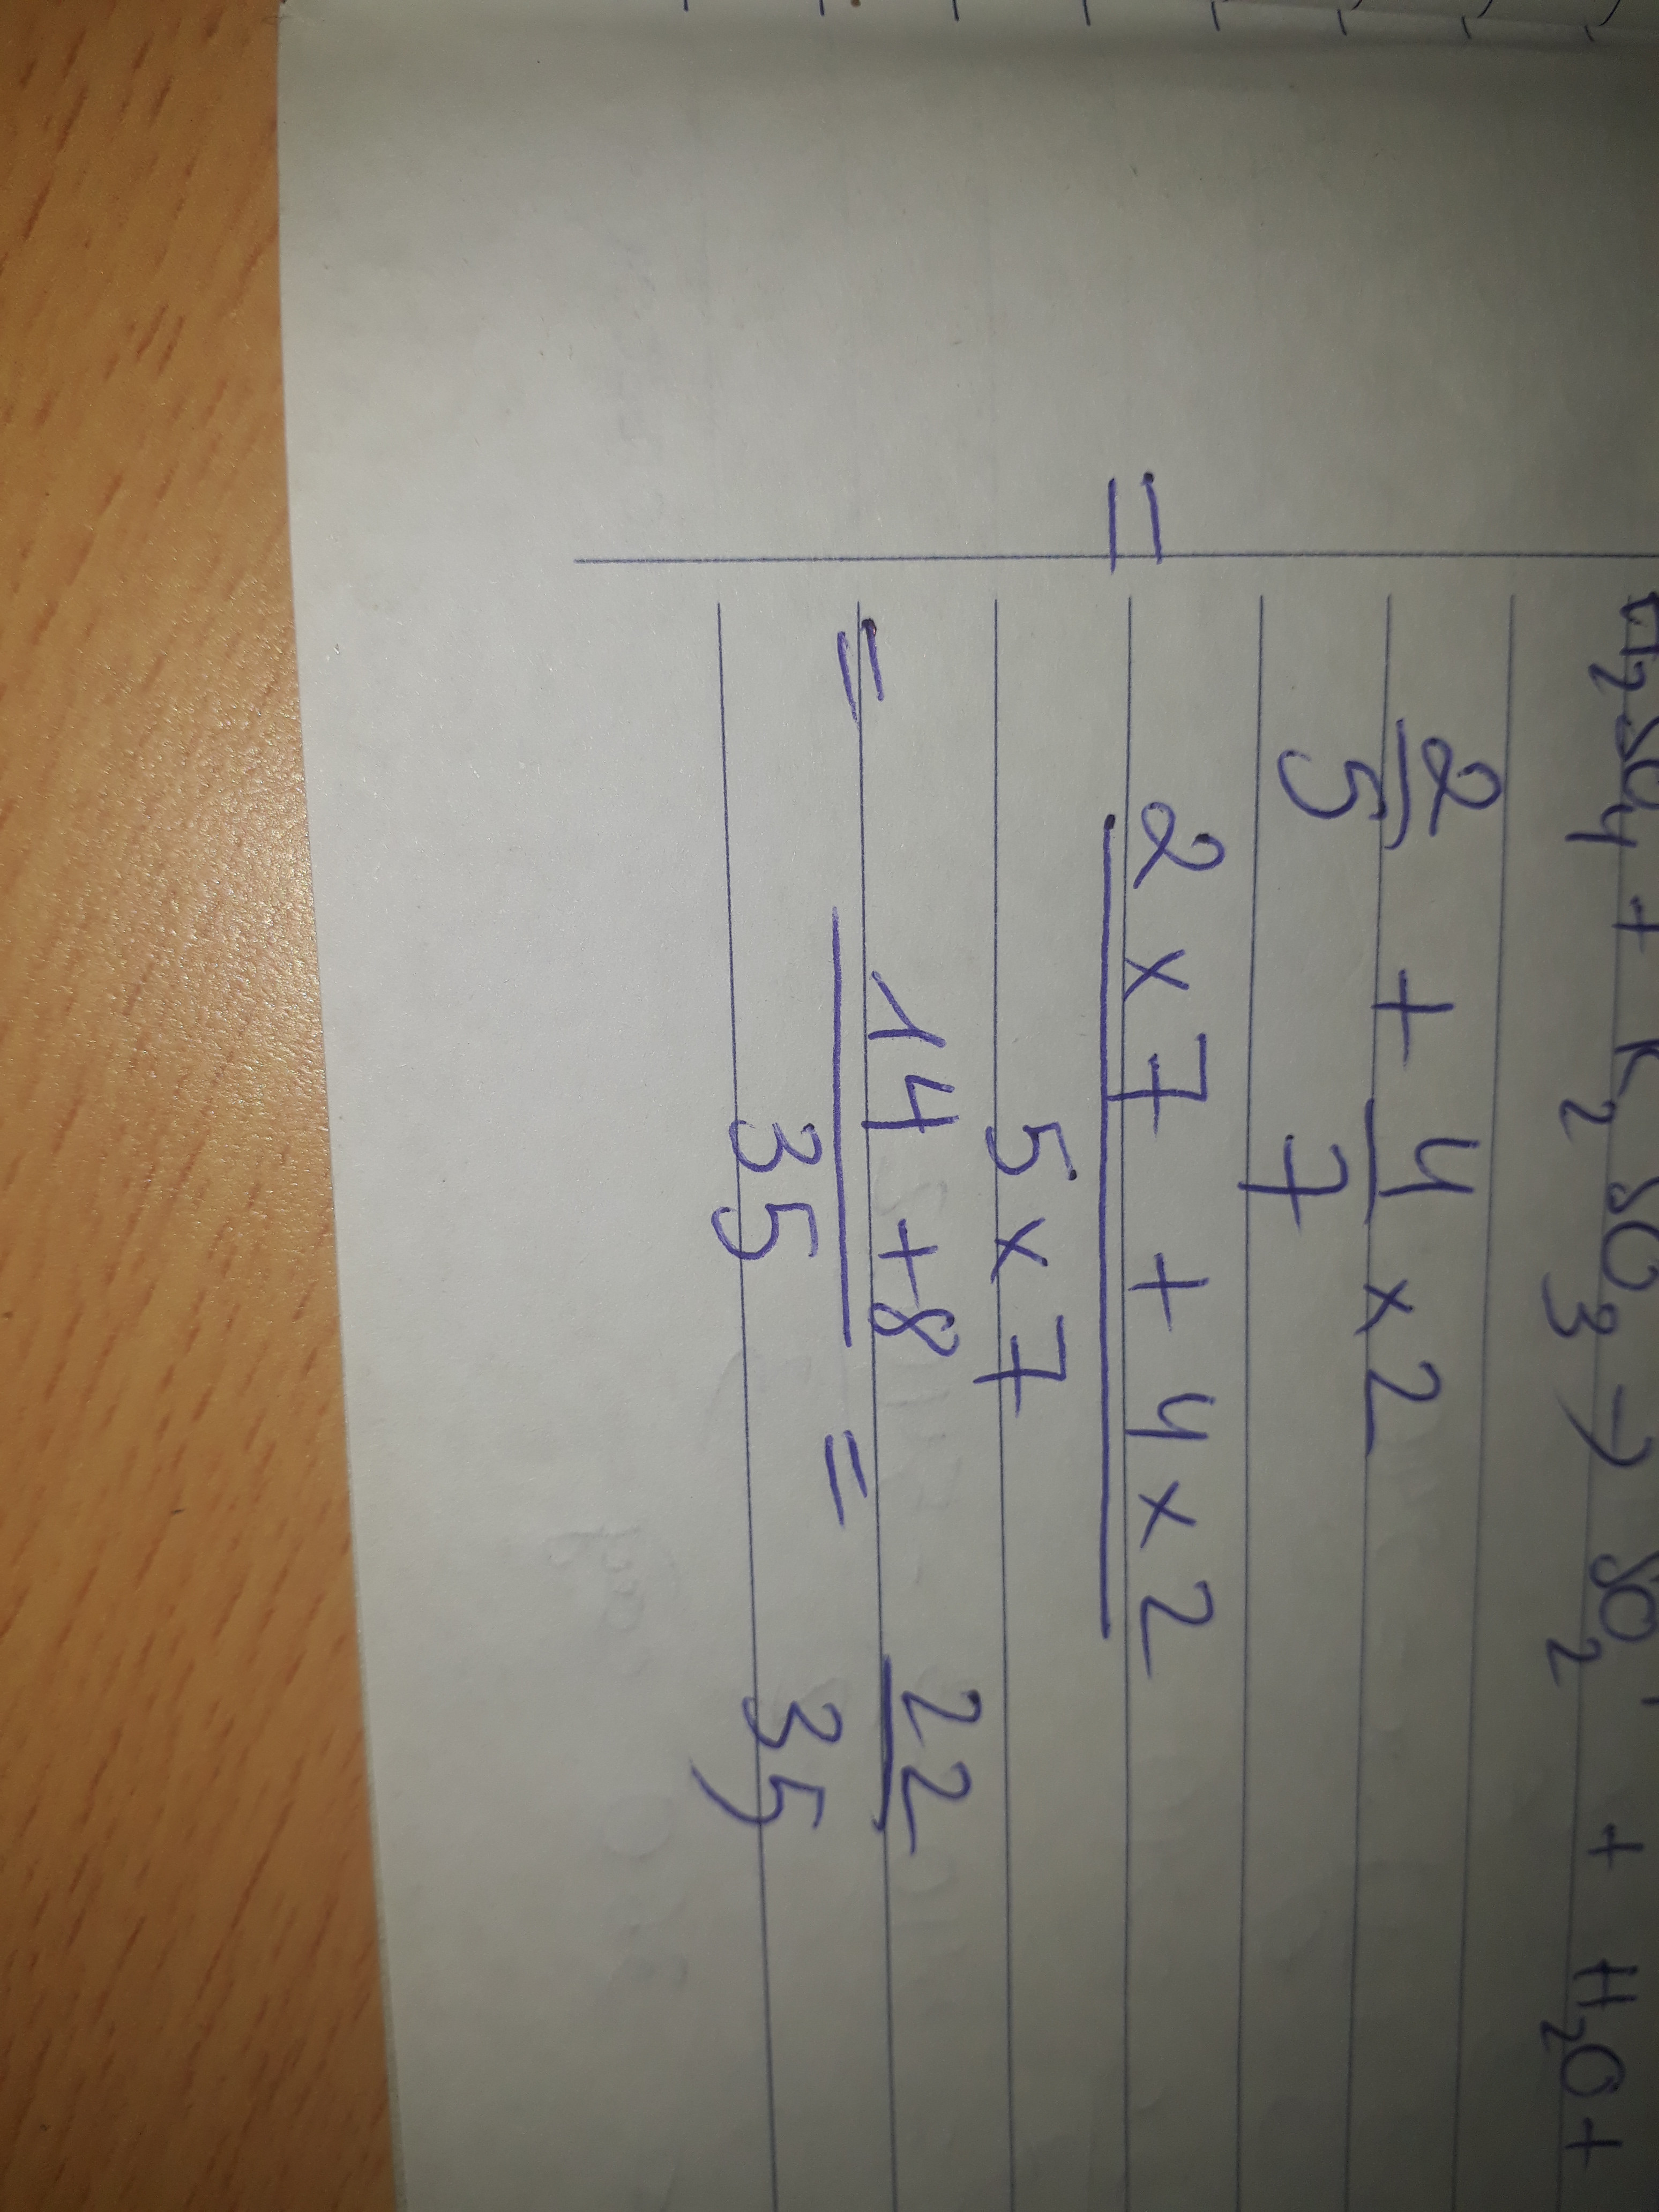 H₂SO₄ + K₂SO₃ → SO₂ + H₂O +
2/5 + 4/7 × 2
= (2 × 7 + 4 × 2)/(5 × 7)
= (14 + 8)/35 = 22/35